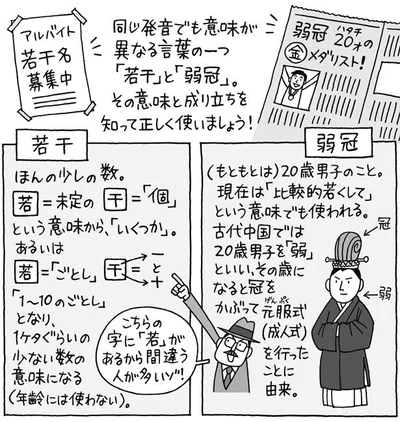 アルバイト
若干名
募集中
同じ発音でも意味が
異なる言葉の一つ
「若干」と「弱冠」。
その意味と成り立ちを
知って正しく使いましょう!
弱冠 20才の
ハタチ
金メダリスト!
若干
ほんの少しの数。
若=未定の 干=「個」
という意味から、「いくつか」。
あるいは
若=「ごとし」 干=一と十
「1〜10のごとし」
となり、
1ケタぐらいの
少ない数の
意味になる
(年齢には使わない)。
こちらの
字に「若」が
あるから間違う
人が多いゾ!
弱冠
(もともとは)20歳男子のこと。
現在は「比較的若くして」
という意味でも使われる。
古代中国では
20歳男子を「弱」
といい、その歳に
なると冠を
かぶって元服式
げんぷく
(成人式)
を行った
ことに
由来。
冠
弱